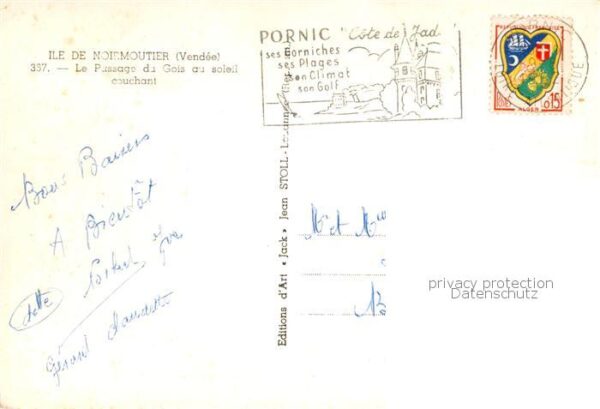 ILE DE NOIRMOUTIER (Vendée)
337. — Le Passage du Gois au soleil
couchant
PORNIC Côte de Jade
ses Corniches
ses Plages
son Climat
son Golf
REPUBLIQUE FRANÇAISE
0,15
ALGER
Editions d'Art « Jack » Jean STOLL - 
Bons Baisers
A Bientôt
Gérard Claudette
Mr et Mme
privacy protection
Datenschutz